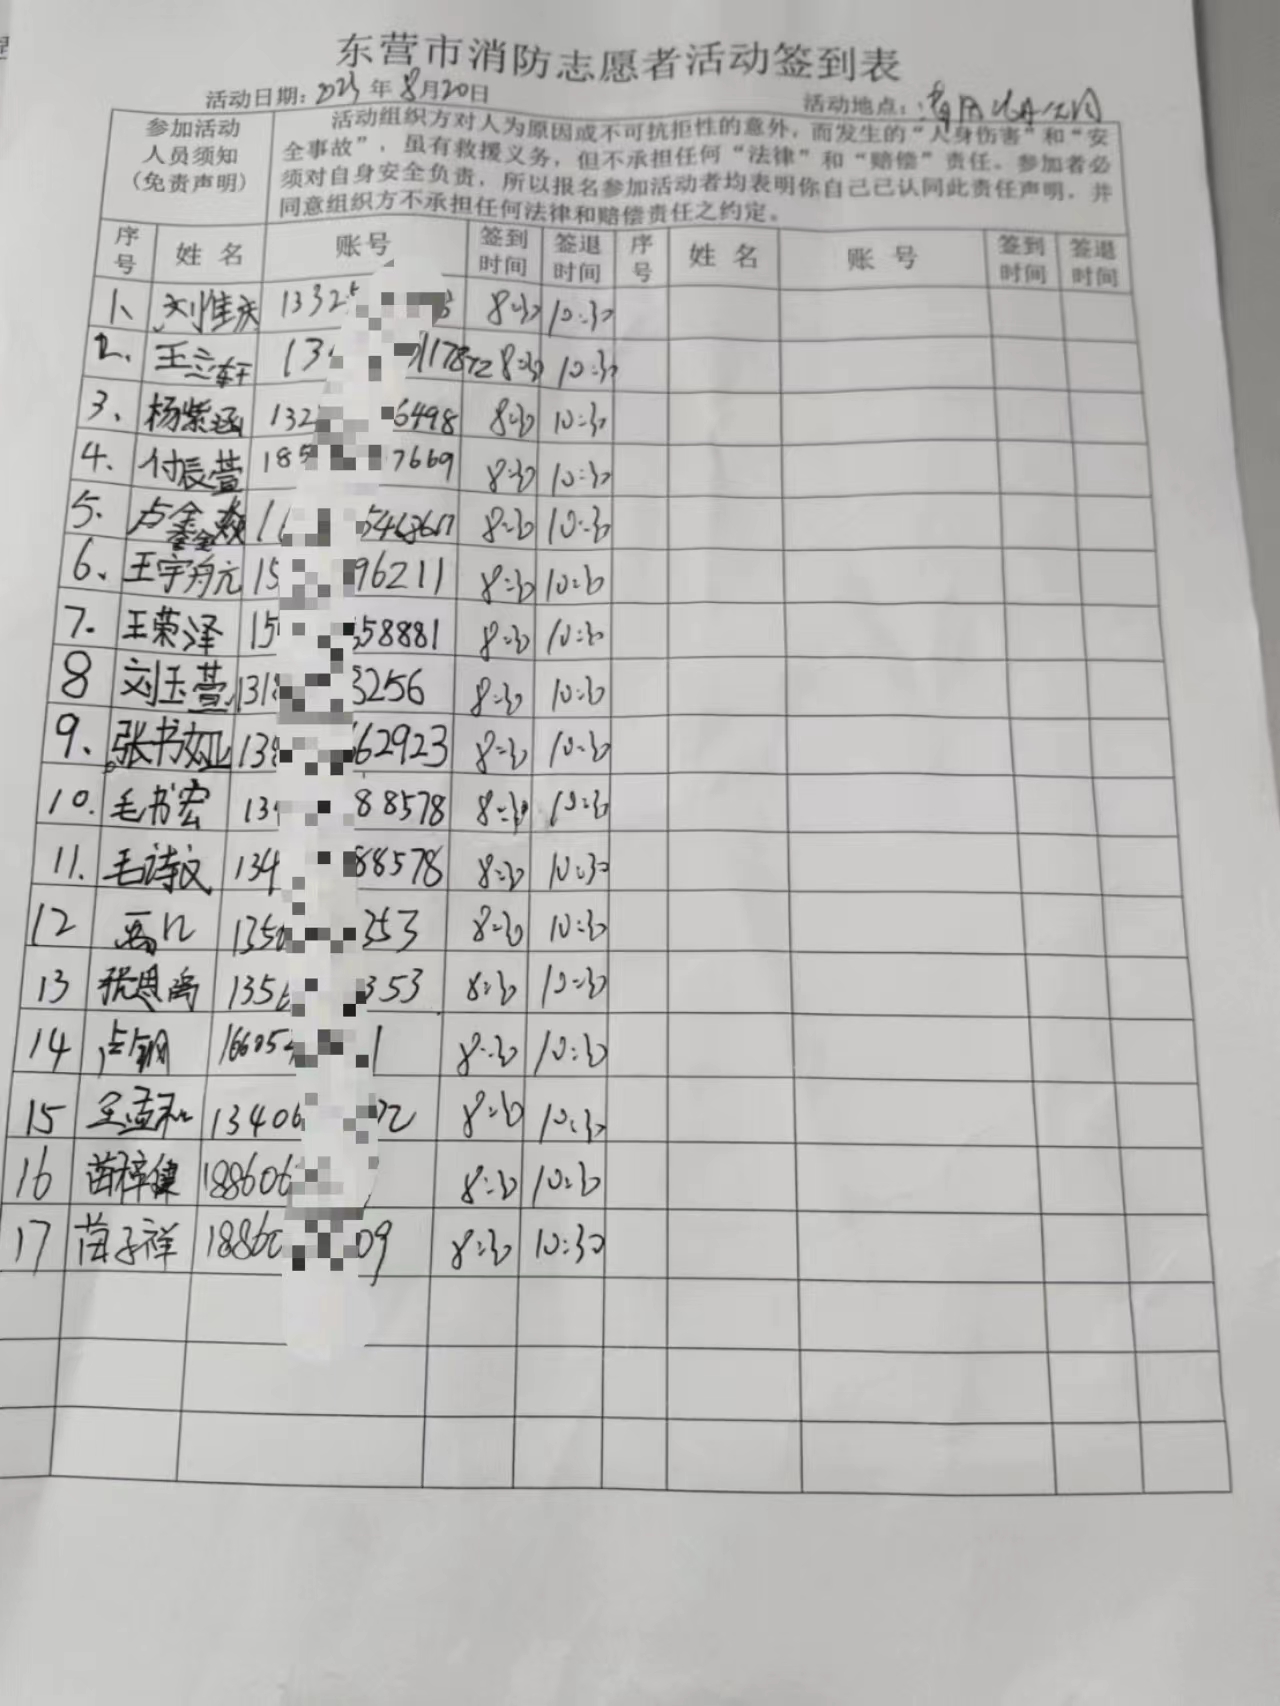 东营市消防志愿者活动签到表
活动日期：2023年8月20日 活动地点：
参加活动
人员须知
（免责声明）
活动组织方对人为原因或不可抗拒性的意外，而发生的“人身伤害”和“安
全事故”，虽有救援义务，但不承担任何“法律”和“赔偿”责任。参加者必
须对自身安全负责，所以报名参加活动者均表明你自己已认同此责任声明，并
同意组织方不承担任何法律和赔偿责任之约定。
序号 姓名 账号 签到时间 签退时间 序号 姓名 账号 签到时间 签退时间
1、 刘惟庆 1332 8:30 10:30
2、 王 轩 13 8:30 10:30
3、 杨紫涵 132 6498 8:30 10:30
4. 付辰萱 185 7669 8:30 10:30
5. 卢 8:30 10:30
6、 王宇舟元 15 96211 8:30 10:30
7. 王荣泽 15 58881 8:30 10:30
8 刘玉萱 1318 3256 8:30 10:30
9、 张书娅 138 62923 8:30 10:30
10. 毛书宏 134 88578 8:30 10:30
11. 毛诗文 134 88578 8:30 10:30
12 1350 353 8:30 10:30
13 张恩禹 1356 353 8:30 10:30
14 16605 1 8:30 10:30
15 孟和 13406 72 8:30 10:30
16 苗梓健 188606 8:30 10:30
17 苗子祥 18860 09 8:30 10:30